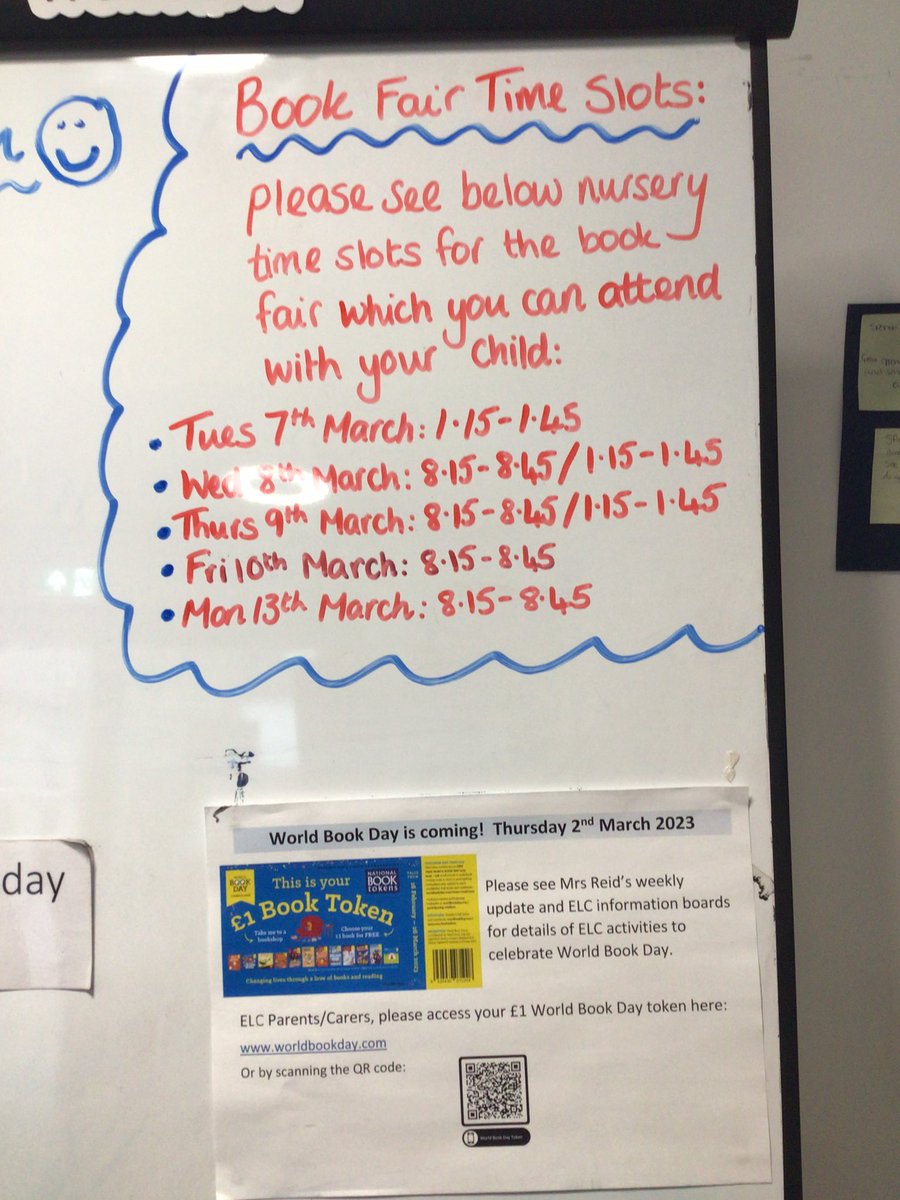 Book Fair Time Slots:
please see below nursery
time slots for the book
fair which you can attend
with your child:
• Tues 7th March: 1.15-1.45
• Wed 8th March: 8.15-8.45/1.15-1.45
• Thurs 9th March: 8.15-8.45/1.15-1.45
• Fri 10th March: 8.15-8.45
• Mon 13th March: 8.15-8.45
day
World Book Day is coming! Thursday 2nd March 2023
BOOK
DAY
This is your
£1 Book Token
NATIONAL
BOOK
tokens
Take me to a
bookshop
Choose your
£1 book for FREE
Changing lives through a love of books and reading
16 February – 26 March 2023
Please see Mrs Reid's weekly
update and ELC information boards
for details of ELC activities to
celebrate World Book Day.
ELC Parents/Carers, please access your £1 World Book Day token here:
www.worldbookday.com
Or by scanning the QR code:
World Book Day Token